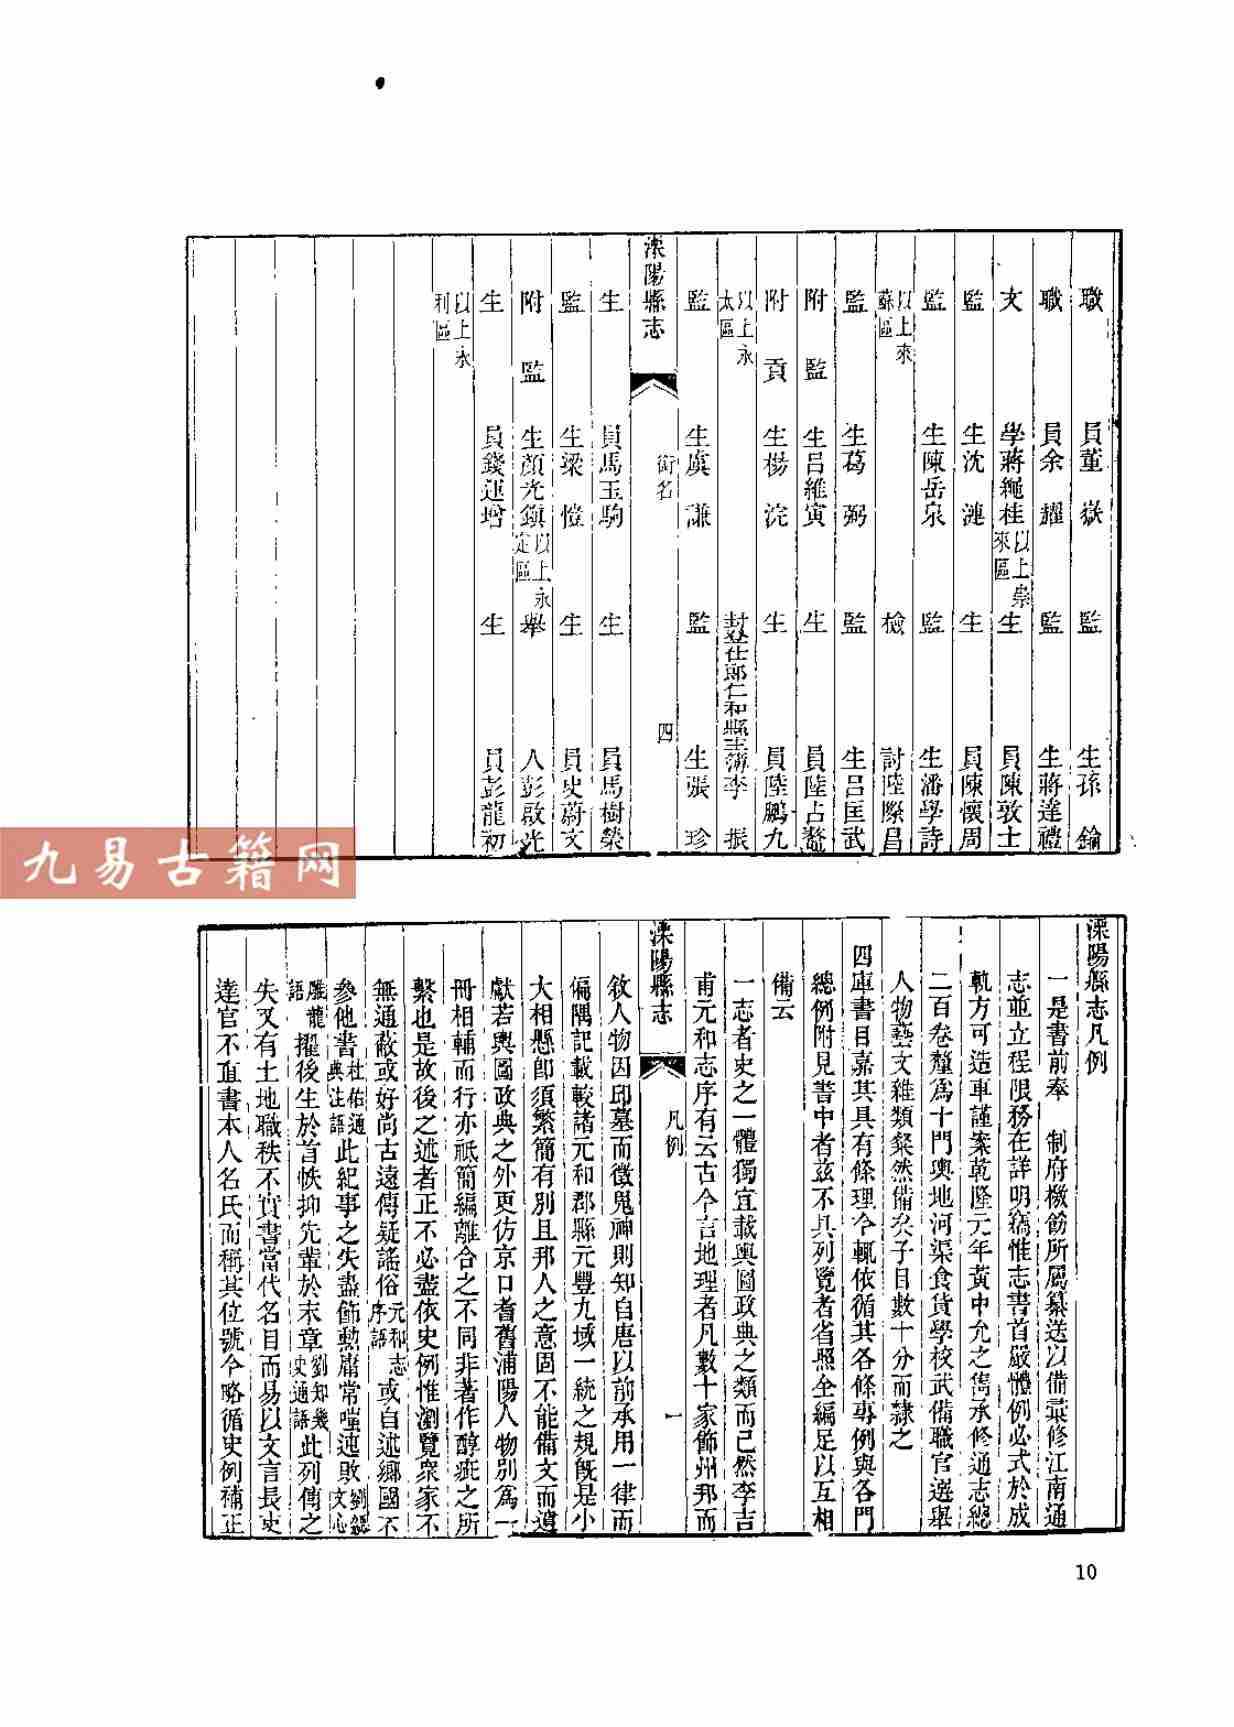 職員董嶽監生孫鑰
職員余耀監生蔣達禮
文學蔣繩桂以上崇來區生員陳敦士
監生沈漣生員陳懷周
監生陳岳泉監生潘學詩
以上來蘇區檢討陸際昌
監生葛弼監生呂匡武
附監生呂維寅生員陸占鰲
附貢生楊浣生員陸鵬九
以上永太區封登仕郎仁和縣主簿李振
監生虞謙監生張珍
溧陽縣志 銜名 四
生員馬玉駒生員馬樹榮
監生梁愷生員史蔚文
附監生顏光鎮以上永定區舉人彭啟光
生員錢運增生員彭龍初
以上永利區
溧陽縣志凡例
一是書前奉 制府檄飭所屬纂送以備彙修江南通
志並立程限務在詳明竊惟志書首嚴體例必式於成
軌方可造車謹案乾隆元年黃中允之雋承修通志總
二百卷釐為十門輿地河渠食貨學校武備職官選舉
人物藝文雜類粲然備矣子目數十分而隸之
四庫書目嘉其具有條理今輒依循其各條專例與各門
總例附見書中者茲不具列覽者省照全編足以互相
備云
一志者史之一體獨宜載輿圖政典之類而已然李吉
甫元和志序有云古今言地理者凡數十家飾州邦而
溧陽縣志 凡例 一
敘人物因邱墓而徵鬼神則知自唐以前承用一律而
偏隅記載較諸元和郡縣元豐九域一統之規旣是小
大相懸卽須繁簡有別且邦人之意固不能備文而遺
獻若輿圖政典之外更仿京口耆舊浦陽人物別為一
冊相輔而行亦祗簡編離合之不同非著作醇疵之所
繫也是故後之述者正不必盡依史例惟瀏覽衆家不
無通蔽或好尚古遠傳疑謠俗元和志序語或自述鄉國不
參他書杜佑通典注語此紀事之失盡飾勳庸常嗤連敗劉勰文心
雕龍語擢後生於首帙抑先輩於末章劉知幾史通語此列傳之
失又有土地職秩不實書當代名目而易以文言長史
達官不直書本人名氏而稱其位號今略循史例補正
10
九易古籍网